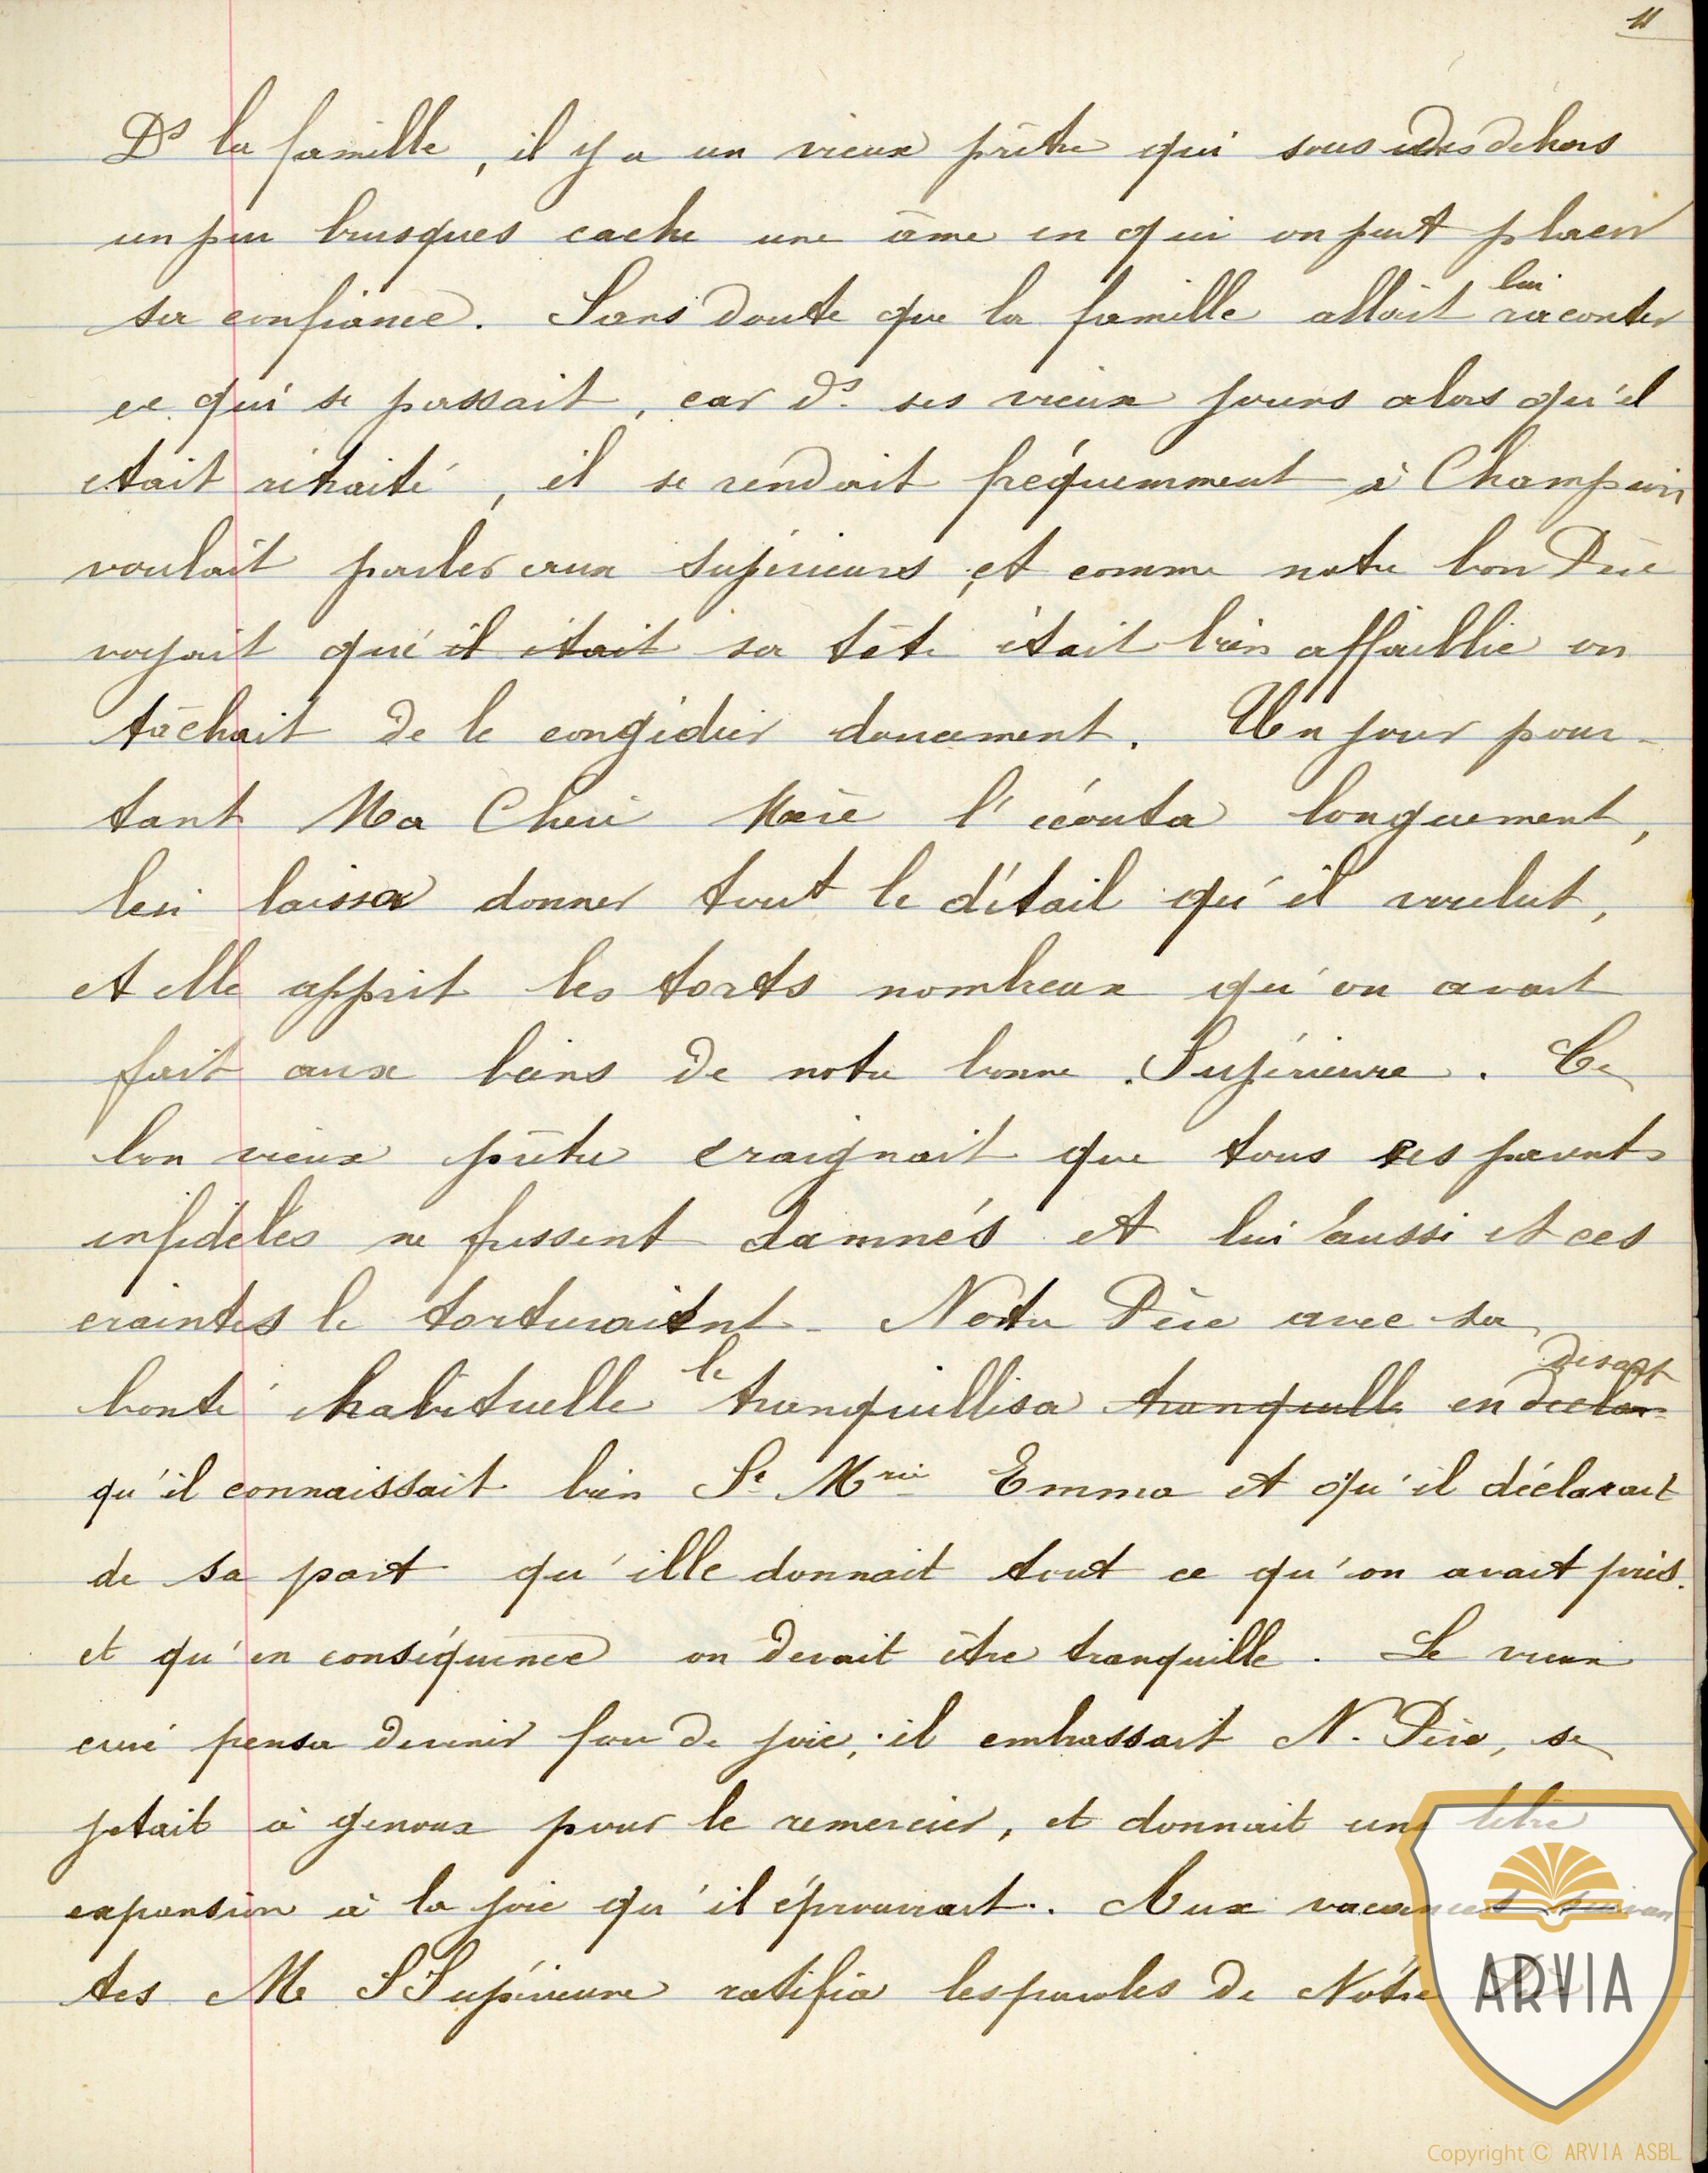 11
Ds la famille, il y a un vieux prêtre qui sous des dehors
un peu brusques cache une âme en qui on peut placer
sa confiance. Sans doute que la famille allait lui raconter
ce qui se passait, car ds ses vieux jours alors qu'il
était retraité, il se rendait fréquemment à Champion
voulait parler aux supérieurs, et comme notre bon Père
voyait que il était sa tête était bien affaiblie on
tâchait de le congédier doucement. Un jour pour-
tant Ma Chère Mère l'écouta longuement,
lui laissa donner tout le détail qu'il voulut,
et elle apprit les torts nombreux qu'on avait
fait aux biens de notre bonne Supérieure. Ce
bon vieux prêtre craignait que tous ces parents
infidèles ne fussent damnés et lui aussi et ces
craintes le torturaient. Notre Père avec sa
bonté habituelle le tranquillisa tranquille en déclar disant
qu'il connaissait bien Sr Mrie Emma et qu'il déclarait
de sa part qu'elle donnait tout ce qu'on avait pris.
et qu'en conséquence on devait être tranquille. Le vieux
curé pensa devenir fou de joie, il embrassait N. Père, se
jetait à genoux pour le remercier, et donnait une libre
expansion à la joie qu'il éprouvait. Aux vacances suivan
tes M S Supérieure ratifia les paroles de Notre
ARVIA
Copyright © ARVIA ASBL